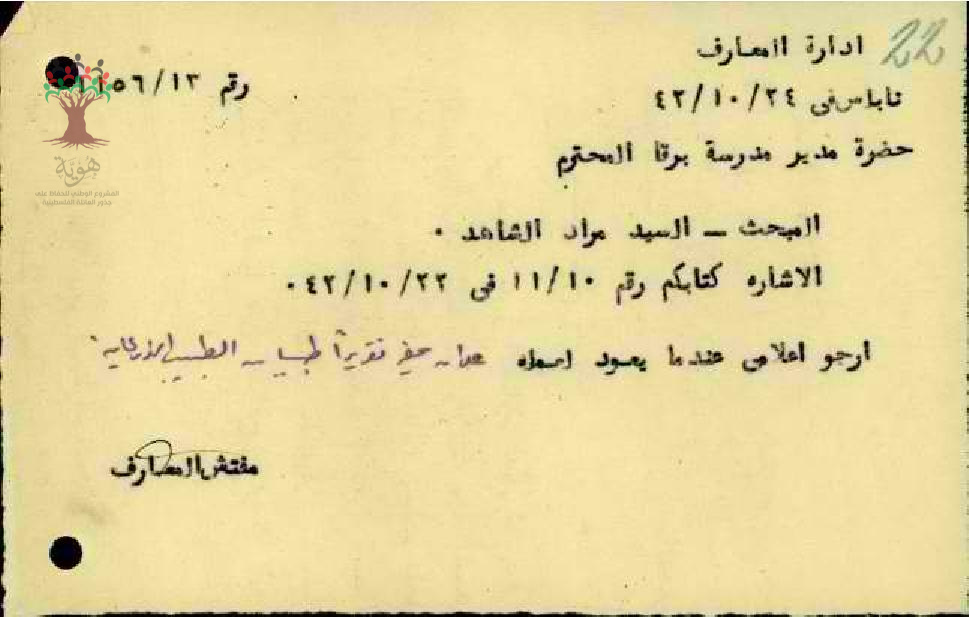 22
ادارة المعارف
رقم ١٥٦/١٣
نابلس فى ٤٢/١٠/٢٤
حضرة مدير مدرسة برقا المحترم
هوية
المشروع الوطني للحفاظ على
جذور العائلة الفلسطينية
المبحث ــ السيد مراد الشاهد ٠
الاشاره كتابكم رقم ١١/١٠ فى ٤٢/١٠/٢٢ ٠
ارجو اعلامى عندما يعود لعمله تقريراً طبيا الطبيب
مفتش المعارف